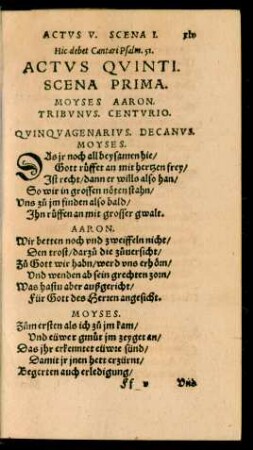 ACTVS V. SCENA I. xlv
Hic debet Cantari Psalm. 51.
ACTVS QVINTI.
SCENA PRIMA.
MOYSES AARON.
TRIBVNVS. CENTVRIO.
QVINQVAGENARIVS. DECANVS.
MOYSES.
DAs jr noch all beysamen hie/
Gott rüffet an mit hertzen frey/
Ist recht/ dann er wills also han/
So wir in grossen nöten stahn/
Vns zů jm finden also bald/
Ihn rüffen an mit grosser gwalt.
AARON.
Wir betten noch vnd zweiffeln nicht/
Den trost/ darzů die zůuersicht/
Zů Gott wir habn/ werd vns erhörn/
Vnd wenden ab sein grechten zorn/
Was hastu aber außgericht/
Für Gott des Herren angesicht.
MOYSES.
Zům ersten als ich zů jm kam/
Vnd eüwer gmüt jm zeyget an/
Das jhr erkennet eüwre sünd/
Damit jr jnen hett erzürnt/
Begerten auch erledigung/
Ff v Vnd